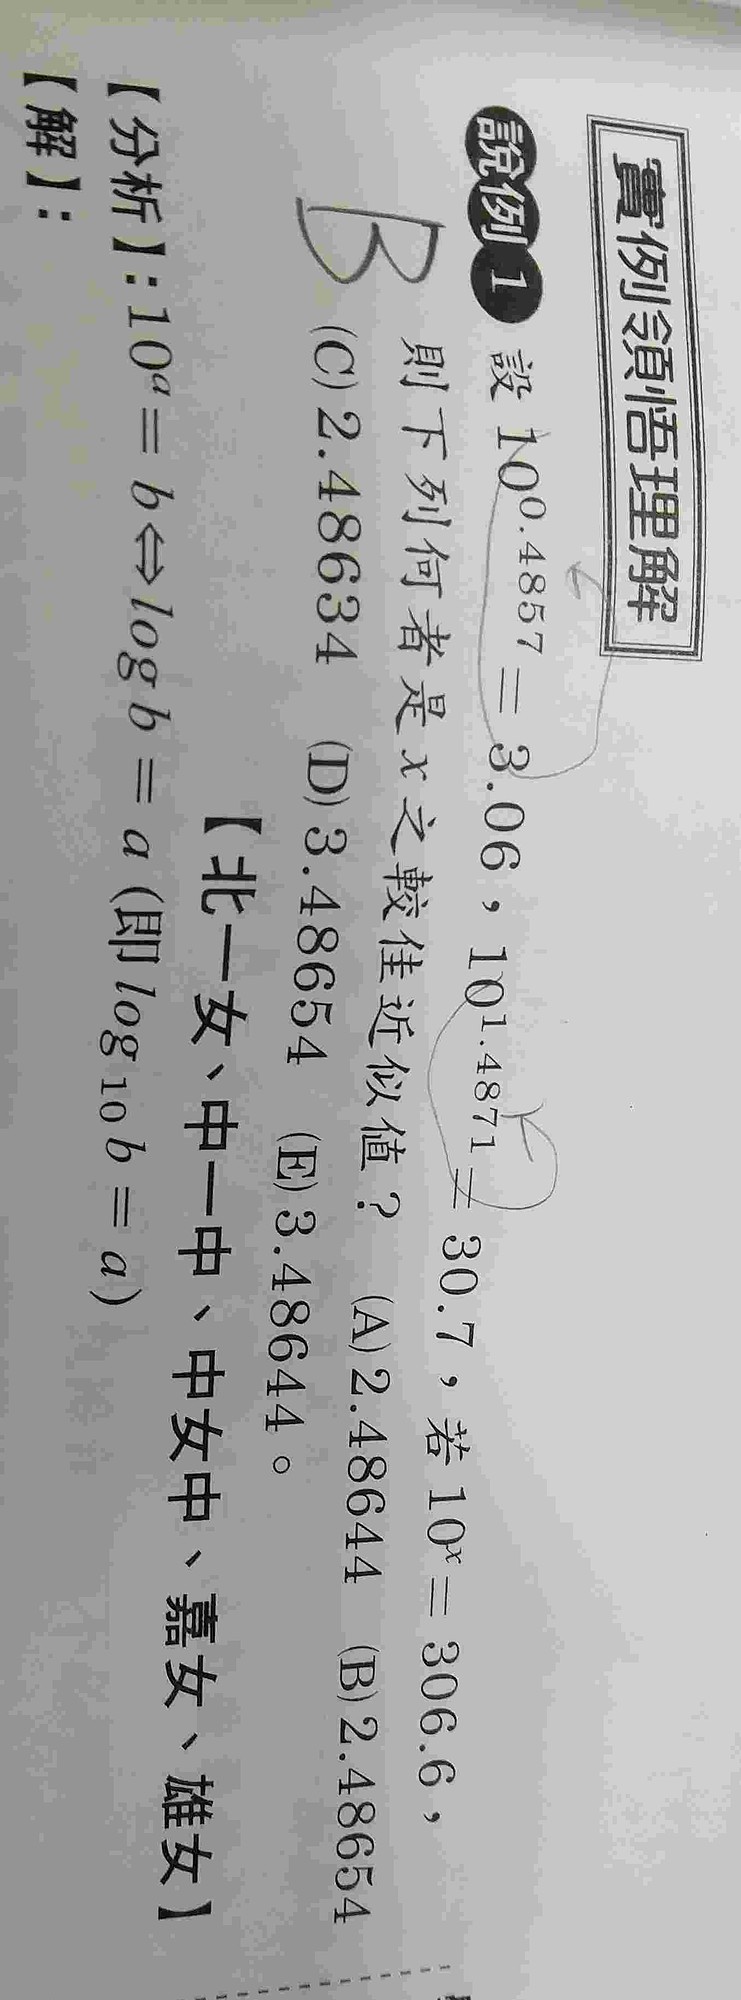 實例領悟理解
說例1 設 10^0.4857 = 3.06，10^1.4871 = 30.7，若 10^x = 306.6，
則下列何者是 x 之較佳近似值？ (A) 2.48644 (B) 2.48654
B
(C) 2.48634 (D) 3.48654 (E) 3.48644。
【北一女、中一中、中女中、嘉女、雄女】
【分析】：10^a = b ⇔ log b = a (即 log₁₀ b = a)
【解】：